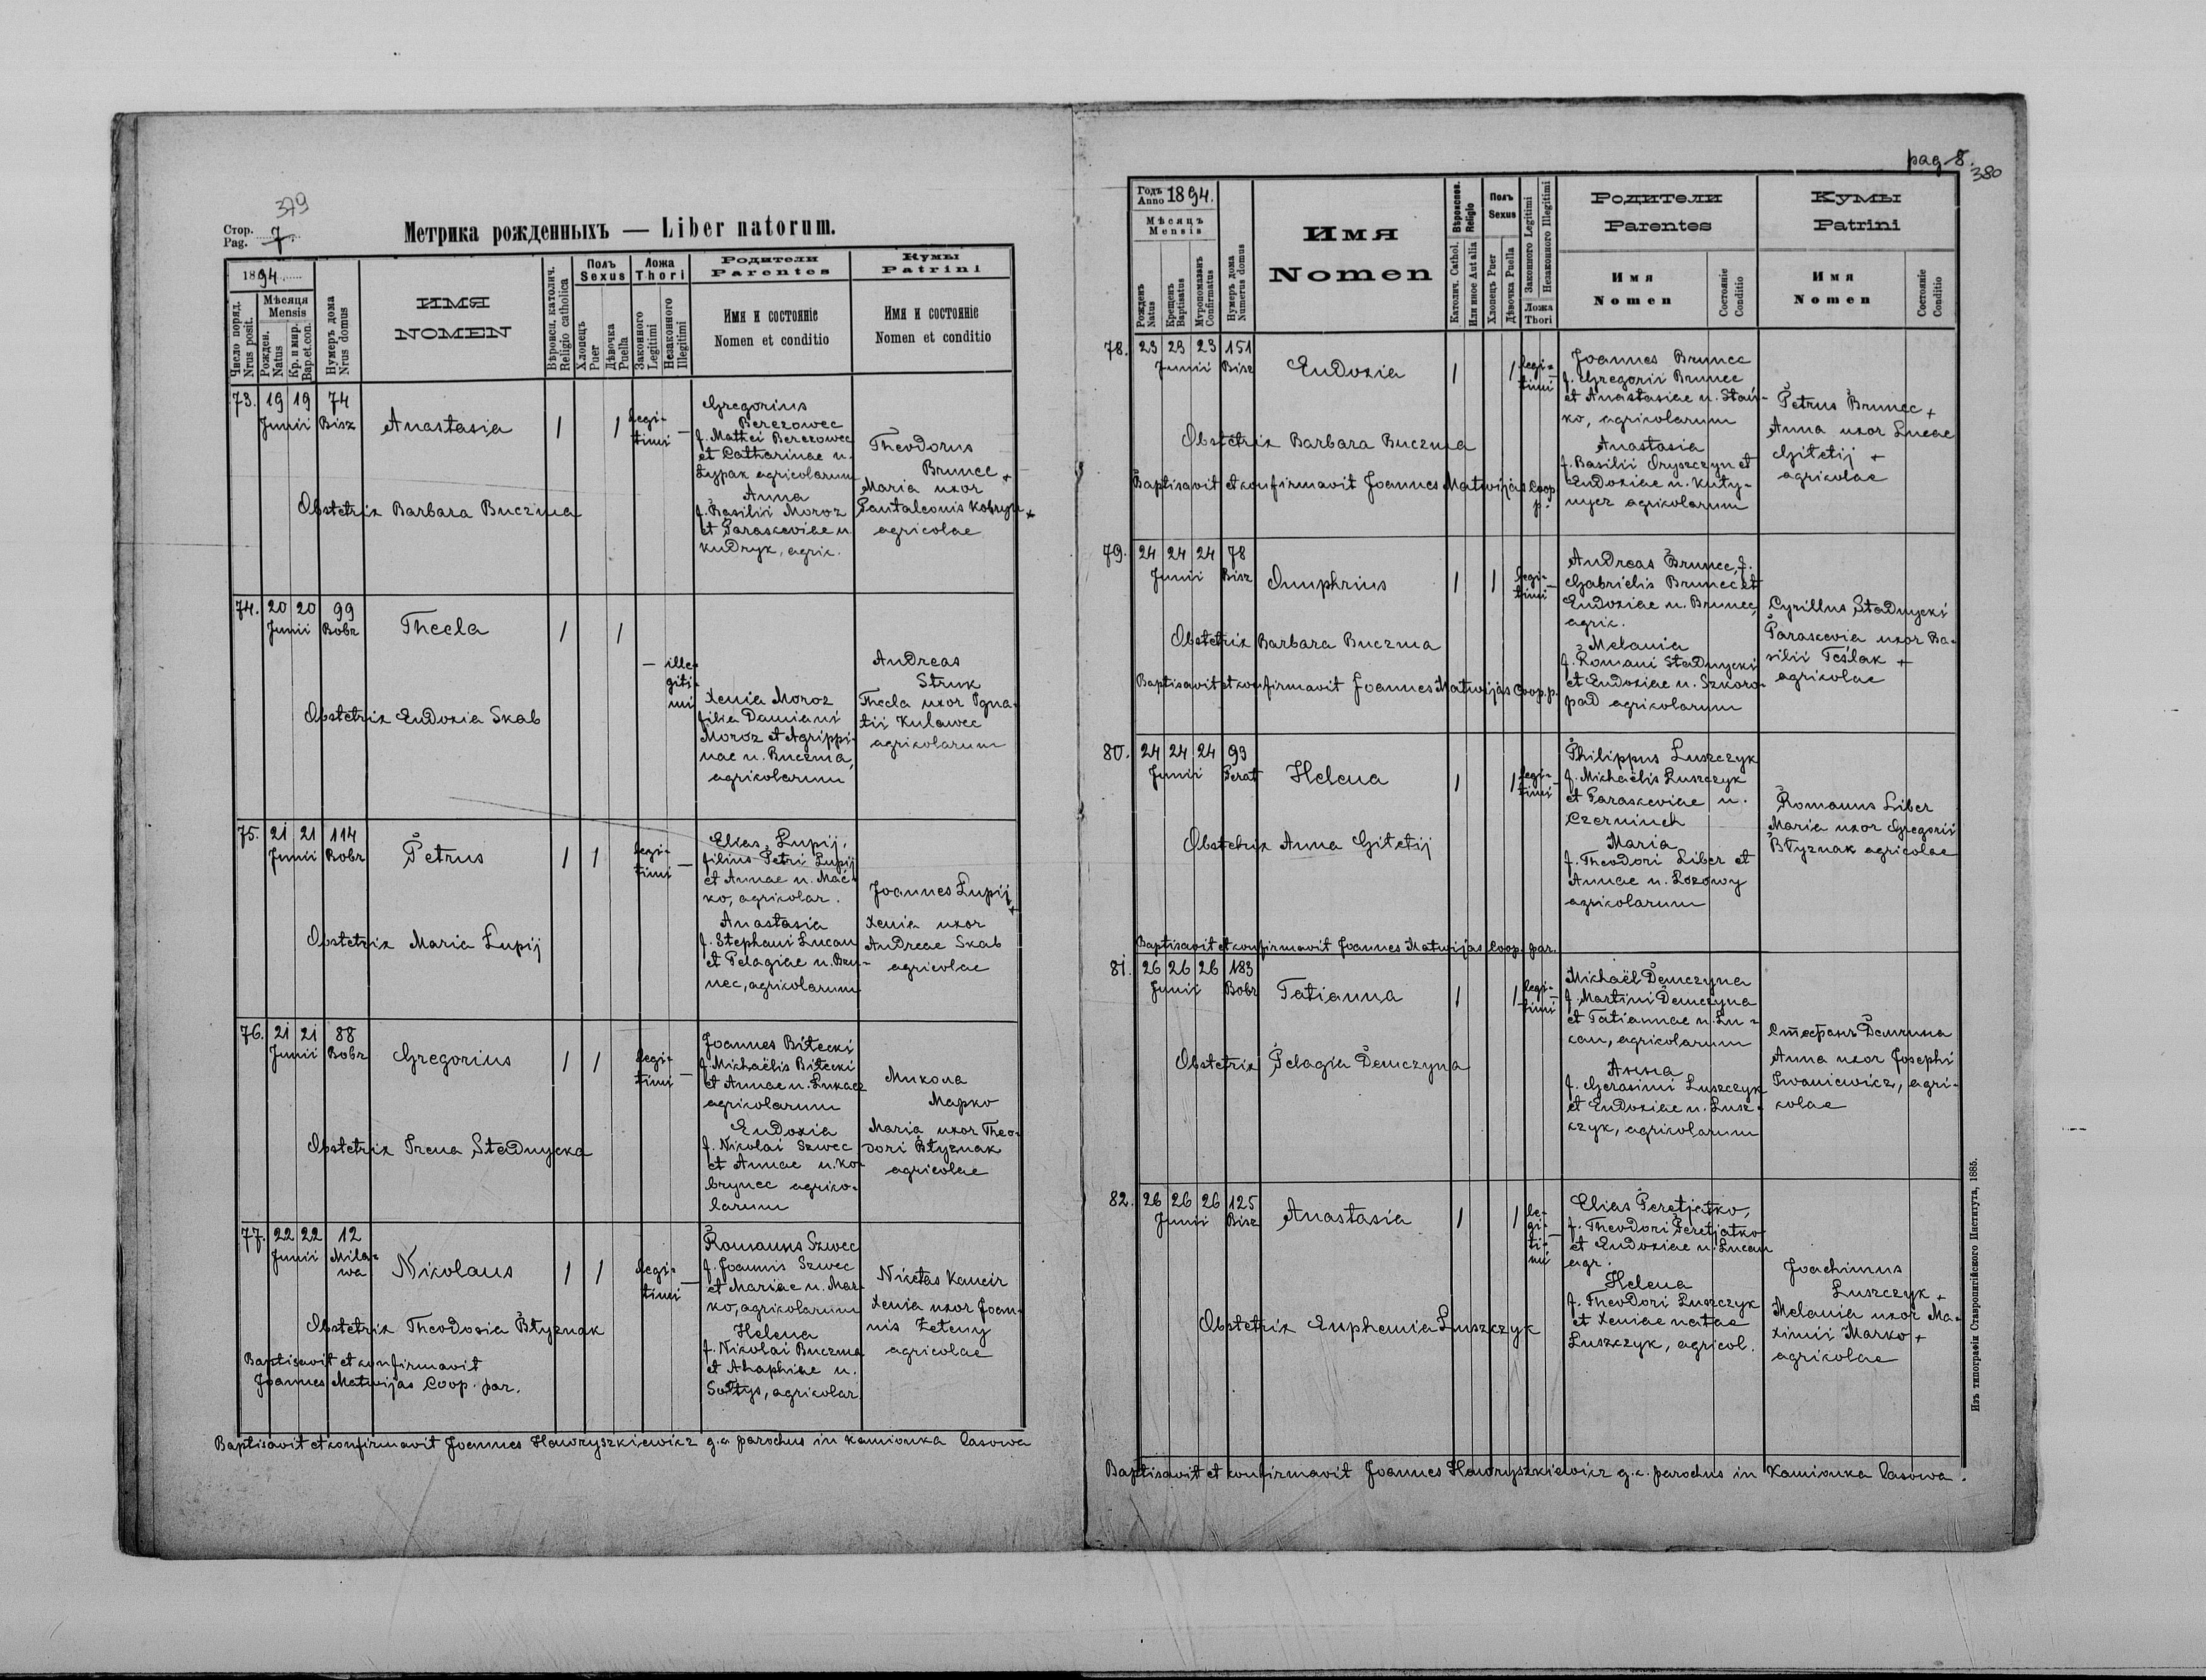 379
Стор.
Pag. 7.
Метрика рожденныхъ — Liber natorum.
1894
Число поряд.
Nrus posit.
Мѣсяця
Mensis
Рожден.
Natus
Кр. и мир.
Bap.et.con.
Нумеръ дома
Nrus domus
ИМЯ
NOMEN
Вѣроисп. католич.
Religio catholica
Полъ
Sexus
Хлопецъ
Puer
Дѣвочка
Puella
Ложа
Thori
Законного
Legitimi
Незаконного
Illegitimi
Родители
Parentes
Имя и состоянiе
Nomen et conditio
Кумы
Patrini
Имя и состоянiе
Nomen et conditio
73. 19 19 74
Junii Bisz
Anastasia
1 1 legi-
timi —
Gregorius
Berezowec
f. Mathei Berezowec
et Catharinae n.
Łypak agricolarum
Anna
f. Basilii Moroz
et Parasceviae n.
Kudryk, agric.
Theodorus
Brunec +
Maria uxor
Pantaleonis Kobryn +
agricolae
Obstetrix Barbara Buczma
74. 20 20 99
Junii Bobr
Thecla
1 1
— ille-
giti-
mi
Xenia Moroz
filia Damiani
Moroz et Agrippi-
nae n. Buczma,
agricolarum
Andreas
Struk
Thecla uxor Igna-
tii Kulawec
agricolarum
Obstetrix Eudoxia Skab
75. 21 21 114
Junii Bobr
Petrus
1 1 legi-
timi —
Elias Łupij,
filius Petri Łupij
et Annae n. Mać-
ko, agricolar.
Anastasia
f. Stephani Lucan
et Pelagiae n. Bru-
nec, agricolarum
Joannes Łupij +
Xenia uxor
Andreae Skab
agricolae
Obstetrix Maria Łupij
76. 21 21 88
Junii Bobr
Gregorius
1 1 legi-
timi —
Joannes Biłecki
f. Michaëlis Biłecki
et Annae n. Łukacz
agricolarum
Eudoxia
f. Nicolai Szwec
et Annae n. Ko-
brynec agrico-
larum
Микола
Марко
Maria uxor Theo-
dori Błyznak
agricolae
Obstetrix Irena Stadnycka
77. 22 22 12
Junii Mila-
wa
Nikolaus
1 1 legi-
timi —
Romanus Szwec
f. Joannis Szwec
et Mariae n. Mar-
ko, agricolarum
Helena
f. Nikolai Buczma
et Ahaphiae n.
Sołtys, agricolar.
Nicetas Kancir
Xenia uxor Joan-
nis Zeteny
agricolae
Obstetrix Theodosia Błyznak
Baptisavit et confirmavit
Joannes Matwijas Coop. par.
Baptisavit et confirmavit Joannes Hawryszkiewicz g.c. parochus in Kamionka lasowa
pag 8.
380
Годъ
Anno 1894.
Мѣсяцъ
Mensis
Рожденъ
Natus
Крещенъ
Baptisatus
Муропомазанъ
Confirmatus
Нумеръ дома
Numerus domus
Имя
Nomen
Вѣроиспов.
Religio
Католич. Cathol.
Или иное Aut alia
Полъ
Sexus
Хлопецъ Puer
Дѣвочка Puella
Законного Legitimi
Незаконного Illegitimi
Ложа
Thori
Родители
Parentes
Имя
Nomen
Состоянiе
Conditio
Кумы
Patrini
Имя
Nomen
Состоянiе
Conditio
78. 23 23 23 151
Junii Bisz
Eudoxia
1 1 legi-
timi —
Joannes Brunec
f. Gregorii Brunec
et Anastasiae n. Stań-
ko, agricolarum
Anastasia
f. Basilii Oryszczyn et
Eudoxiae n. Kuty-
nycz agricolarum
Petrus Brunec +
Anna uxor Lucae
Gitetij +
agricolae
Obstetrix Barbara Buczma
Baptisavit et confirmavit Joannes Matwijas Coop.
p.
79. 24 24 24 78
Junii Bisz
Onuphrius
1 1 legi-
timi —
Andreas Brunec, f.
Gabrielis Brunec et
Eudoxiae n. Brunec,
agric.
Melania
f. Romani Stadnycki
et Eudoxiae n. Szkoro-
pad agricolarum
Cyrillus Stadnycki
Parascevia uxor Ba-
silii Teślak +
agricolae
Obstetrix Barbara Buczma
Baptisavit et confirmavit Joannes Matwijas Coop. p.
80. 24 24 24 99
Junii Perat
Helena
1 1 legi-
timi —
Philippus Łuszczyk
f. Michaëlis Łuszczyk
et Parasceviae n.
Czerniuch
Maria
f. Theodori Liber et
Annae n. Lozowy
agricolarum
Romanus Liber
Maria uxor Gregorii
Błyznak agricolae
Obstetrix Anna Gitetij
Baptisavit et confirmavit Joannes Matwijas Coop. par.
81. 26 26 26 183
Junii Bobr
Tatianna
1 1 legi-
timi —
Michaël Demczyna
f. Martini Demczyna
et Tatiannae n. Lu-
can, agricolarum
Анна
f. Gerasimi Łuszczyk
et Eudoxiae n. Łusz-
czyk, agricolarum
Стефанъ Демчина
Anna uxor Josephi
Iwaniewicz, agri-
colae
Obstetrix Pelagia Demczyna
82. 26 26 26 125
Junii Bisz
Anastasia
1 1 le-
gi-
ti-
mi —
Elias Peretjatko,
f. Theodori Peretjatko
et Eudoxiae n. Lucan
agr.
Helena
f. Theodori Łuszczyk
et Xeniae natae
Łuszczyk, agricol.
Joachimus
Łuszczyk +
Melania uxor Ma-
ximii Marko +
agricolae
Obstetrix Euphemia Łuszczyk
Baptisavit et confirmavit Joannes Hawryszkiewicz g.c. parochus in Kamionka lasowa.
Изъ типографiи Ставропигiйского Института, 1885.